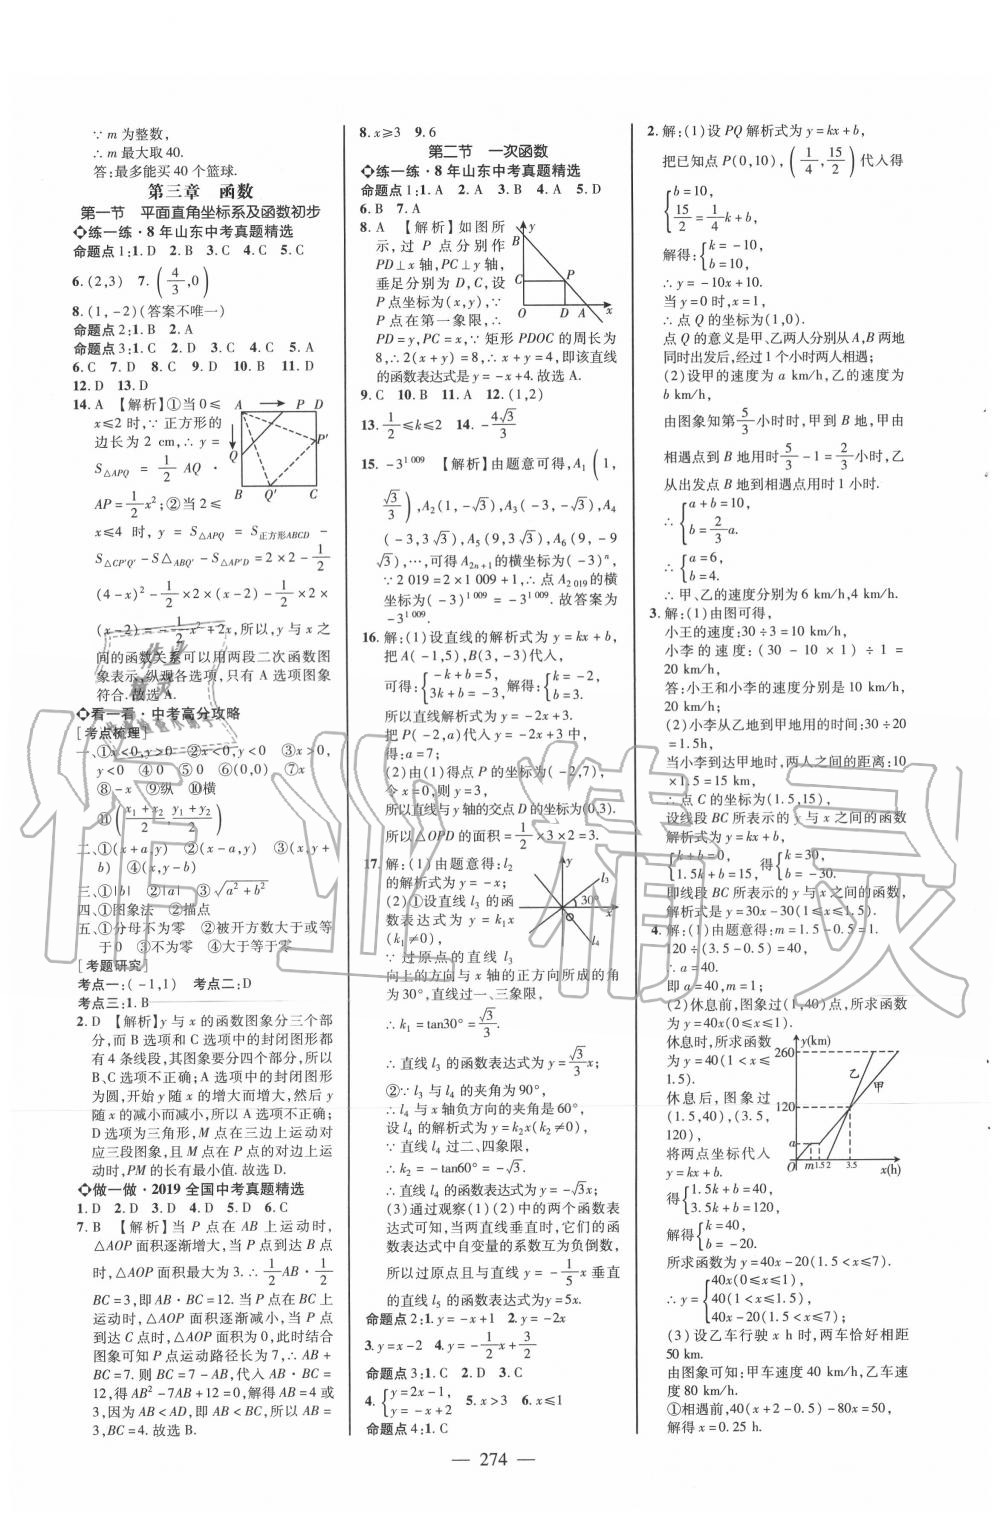 ∵ m 为整数,
∴ m 最大取 40.
答:最多能买 40 个篮球.
第三章 函数
第一节 平面直角坐标系及函数初步
练一练·8 年山东中考真题精选
命题点 1:1. D 2. B 3. C 4. C 5. C
6. (2,3) 7. (4/3,0)
8. (1,-2)(答案不唯一)
命题点 2:1. B 2. A
命题点 3:1. C 2. D 3. C 4. C 5. A
6. C 7. D 8. C 9. D 10. B 11. D
12. D 13. D
14. A 【解析】①当 0≤
x≤2 时,∵ 正方形的
边长为 2 cm,∴ y =
S△APQ = 1/2 AQ ·
AP = 1/2 x²;②当 2≤
x≤4 时, y = S△APQ = S正方形ABCD -
S△CP′Q′ - S△ABQ′ - S△AP′D = 2×2 - 1/2
(4-x)² - 1/2 ×2×(x-2) - 1/2 ×2×
(x-2) = -1/2 x²+2x,所以,y 与 x 之
间的函数关系可以用两段二次函数图
象表示,纵观各选项,只有 A 选项图象
符合.故选 A.
A P D
P′
Q
B Q′ C
看一看·中考高分攻略
[考点梳理]
一、①x<0,y>0 ②x<0,y<0 ③x>0,
y<0 ④0 ⑤0 ⑥(0,0) ⑦x
⑧-x ⑨纵 ⑩横
⑪((x₁+x₂)/2, (y₁+y₂)/2)
二、①(x+a,y) ②(x-a,y) ③(x,y+
b) ④(x,y-b)
三、①|b| ②|a| ③√(a²+b²)
四、①图象法 ②描点
五、①分母不为零 ②被开方数大于或等
于 0 ③不为零 ④大于等于零
[考题研究]
考点一:(-1,1) 考点二:D
考点三:1. B
2. D 【解析】y 与 x 的函数图象分三个部
分,而 B 选项和 C 选项中的封闭图形都
有 4 条线段,其图象要分四个部分,所以
B、C 选项不正确;A 选项中的封闭图形
为圆,开始 y 随 x 的增大而增大,然后 y
随 x 的减小而减小,所以 A 选项不正确;
D 选项为三角形,M 点在三边上运动对
应三段图象,且 M 点在 P 点的对边上运动
时,PM 的长有最小值.故选 D.
做一做·2019 全国中考真题精选
1. D 2. D 3. D 4. D 5. D 6. C
7. B 【解析】当 P 点在 AB 上运动时,
△AOP 面积逐渐增大,当 P 点到达 B 点
时,△AOP 面积最大为 3.∴ 1/2 AB· 1/2
BC=3,即 AB·BC=12. 当 P 点在 BC 上
运动时,△AOP 面积逐渐减小,当 P 点
到达 C 点时,△AOP 面积为 0,此时结合
图象可知 P 点运动路径长为 7,∴ AB+
BC=7. 则 BC=7-AB,代入 AB·BC=
12,得 AB²-7AB+12=0,解得 AB=4 或
3,因为 AB<AD,即 AB<BC,所以 AB=
3,BC=4. 故选 B.
8. x≥3 9. 6
第二节 一次函数
练一练·8 年山东中考真题精选
命题点 1:1. A 2. B 3. B 4. A 5. D
6. B 7. A
8. A 【解析】如图所
示,过 P 点分别作
PD⊥x 轴,PC⊥y 轴,
垂足分别为 D、C,设
P 点坐标为(x,y),∵
P 点在第一象限,∴
PD=y,PC=x,∵ 矩形 PDOC 的周长为
8,∴2(x+y)=8,∴x+y=4,即该直线
的函数表达式是 y=-x+4.故选 A.
y
B
C P
O D A x
9. C 10. B 11. A 12. (1,2)
13. 1/2≤k≤2 14. -4√3/3
15. -3^1 009 【解析】由题意可得,A₁(1,
√3/3),A₂(1,-√3),A₃(-3,-√3),A₄
(-3,3√3),A₅(9,3√3),A₆(9,-9
√3),…,可得 A₂ₙ₊₁的横坐标为(-3)ⁿ,
∵2 019=2×1 009+1,∴ 点 A₂ ₀₁₉的横
坐标为(-3)^1 009=-3^1 009.故答案为
-3^1 009.
16. 解:(1)设直线的解析式为 y=kx+b,
把 A(-1,5),B(3,-3)代入,
可得:{-k+b=5, 3k+b=-3,解得:{k=-2, b=3.
所以直线解析式为 y=-2x+3.
把 P(-2,a)代入 y=-2x+3 中,
得:a=7;
(2)由(1)得点 P 的坐标为(-2,7),
令 x=0,则 y=3,
所以直线与 y 轴的交点 D 的坐标为(0,3).
所以△OPD 的面积= 1/2 ×3×2=3.
17. 解:(1)由题意得:l₂
的解析式为 y=-x;
(2)①设直线 l₃ 的函
数表达式为 y=k₁x
(k₁≠0),
∵ 过原点的直线 l₃
向上的方向与 x 轴的正方向所成的角
为 30°,直线过一、三象限,
∴ k₁=tan30°=√3/3.
∴ 直线 l₃ 的函数表达式为 y=√3/3 x;
②∵ l₃ 与 l₄ 的夹角为 90°,
∴ l₄ 与 x 轴负方向的夹角是 60°,
设 l₄ 的解析式为 y=k₂x(k₂≠0),
∵ 直线 l₄ 过二、四象限,
∴ k₂=-tan60°=-√3,
∴ 直线 l₄ 的函数表达式为 y=-√3x;
(3)通过观察(1)(2)中的两个函数表
达式可知,当两直线垂直时,它们的函
数表达式中自变量的系数互为负倒数,
所以过原点且与直线 y=-1/5 x 垂直
的直线 l₅ 的函数表达式为 y=5x.
y
l₃
30°
O x
l₄
命题点 2:1. y=-x+1 2. y=-2x
3. y=x-2 4. y=-1/2x+3/2
命题点 3:1. C 2. D 3. C
4. {y=2x-1, y=-x+2 5. x>3 6. x≤1
命题点 4:1. C
2. 解:(1)设 PQ 解析式为 y=kx+b,
把已知点 P(0,10),(1/4,15/2)代入得
{b=10, 15/2=1/4k+b,
解得:{k=-10, b=10.
∴ y=-10x+10.
当 y=0 时,x=1,
∴ 点 Q 的坐标为(1,0).
点 Q 的意义是甲、乙两人分别从 A,B 两地
同时出发后,经过 1 个小时两人相遇;
(2)设甲的速度为 a km/h,乙的速度为
b km/h,
由图象知第 5/3 小时时,甲到 B 地,甲由
相遇点到 B 地用时 5/3 -1= 2/3 小时,乙
从出发点 B 地到相遇点用时 1 小时.
∴ {a+b=10, b=2/3a.
∴ {a=6, b=4.
∴ 甲、乙的速度分别为 6 km/h,4 km/h.
3. 解:(1)由图可得,
小王的速度:30÷3=10( km/h),
小李的速度:(30-10×1)÷1=
20( km/h),
答:小王和小李的速度分别是 10 km/h、
20 km/h;
(2)小李从乙地到甲地用的时间:30÷20
=1.5h,
当小李到达甲地时,两人之间的距离:10
×1.5=15( km),
∴ 点 C 的坐标为(1.5,15),
设线段 BC 所表示的 y 与 x 之间的函数
解析式为 y=kx+b,
{k+b=0, 1.5k+b=15, 得{k=30, b=-30.
即线段 BC 所表示的 y 与 x 之间的函数,
解析式是 y=30x-30(1≤x≤1.5).
4. 解:(1)由题意得:m=1.5-0.5=1.
120÷(3.5-0.5)=40,
∴ a=40.
即 a=40,m=1;
(2)休息前,图象过(1,40)点,所求函数
为 y=40x(0≤x≤1).
休息时,所求函数
为 y=40(1<x≤
1.5).
休息后,图象过
(1.5,40),(3.5,
120),
将两点坐标代入
y=kx+b.
得{1.5k+b=40, 3.5k+b=120,
解得{k=40, b=-20.
所求函数为 y=40x-20(1.5<x≤7).
∴ y={40x(0≤x≤1), 40(1<x≤1.5), 40x-20(1.5<x≤7).
y(km)
260
乙
甲
120
a
O m 1.5 2 3.5 x(h)
(3)设乙车行驶 x h 时,两车恰好相距
50 km.
由图象可知:甲车速度 40 km/h,乙车速
度 80 km/h.
①相遇前,40(x+2-0.5)-80x=50,
解得 x=0.25 h.
— 274 —
作业精灵